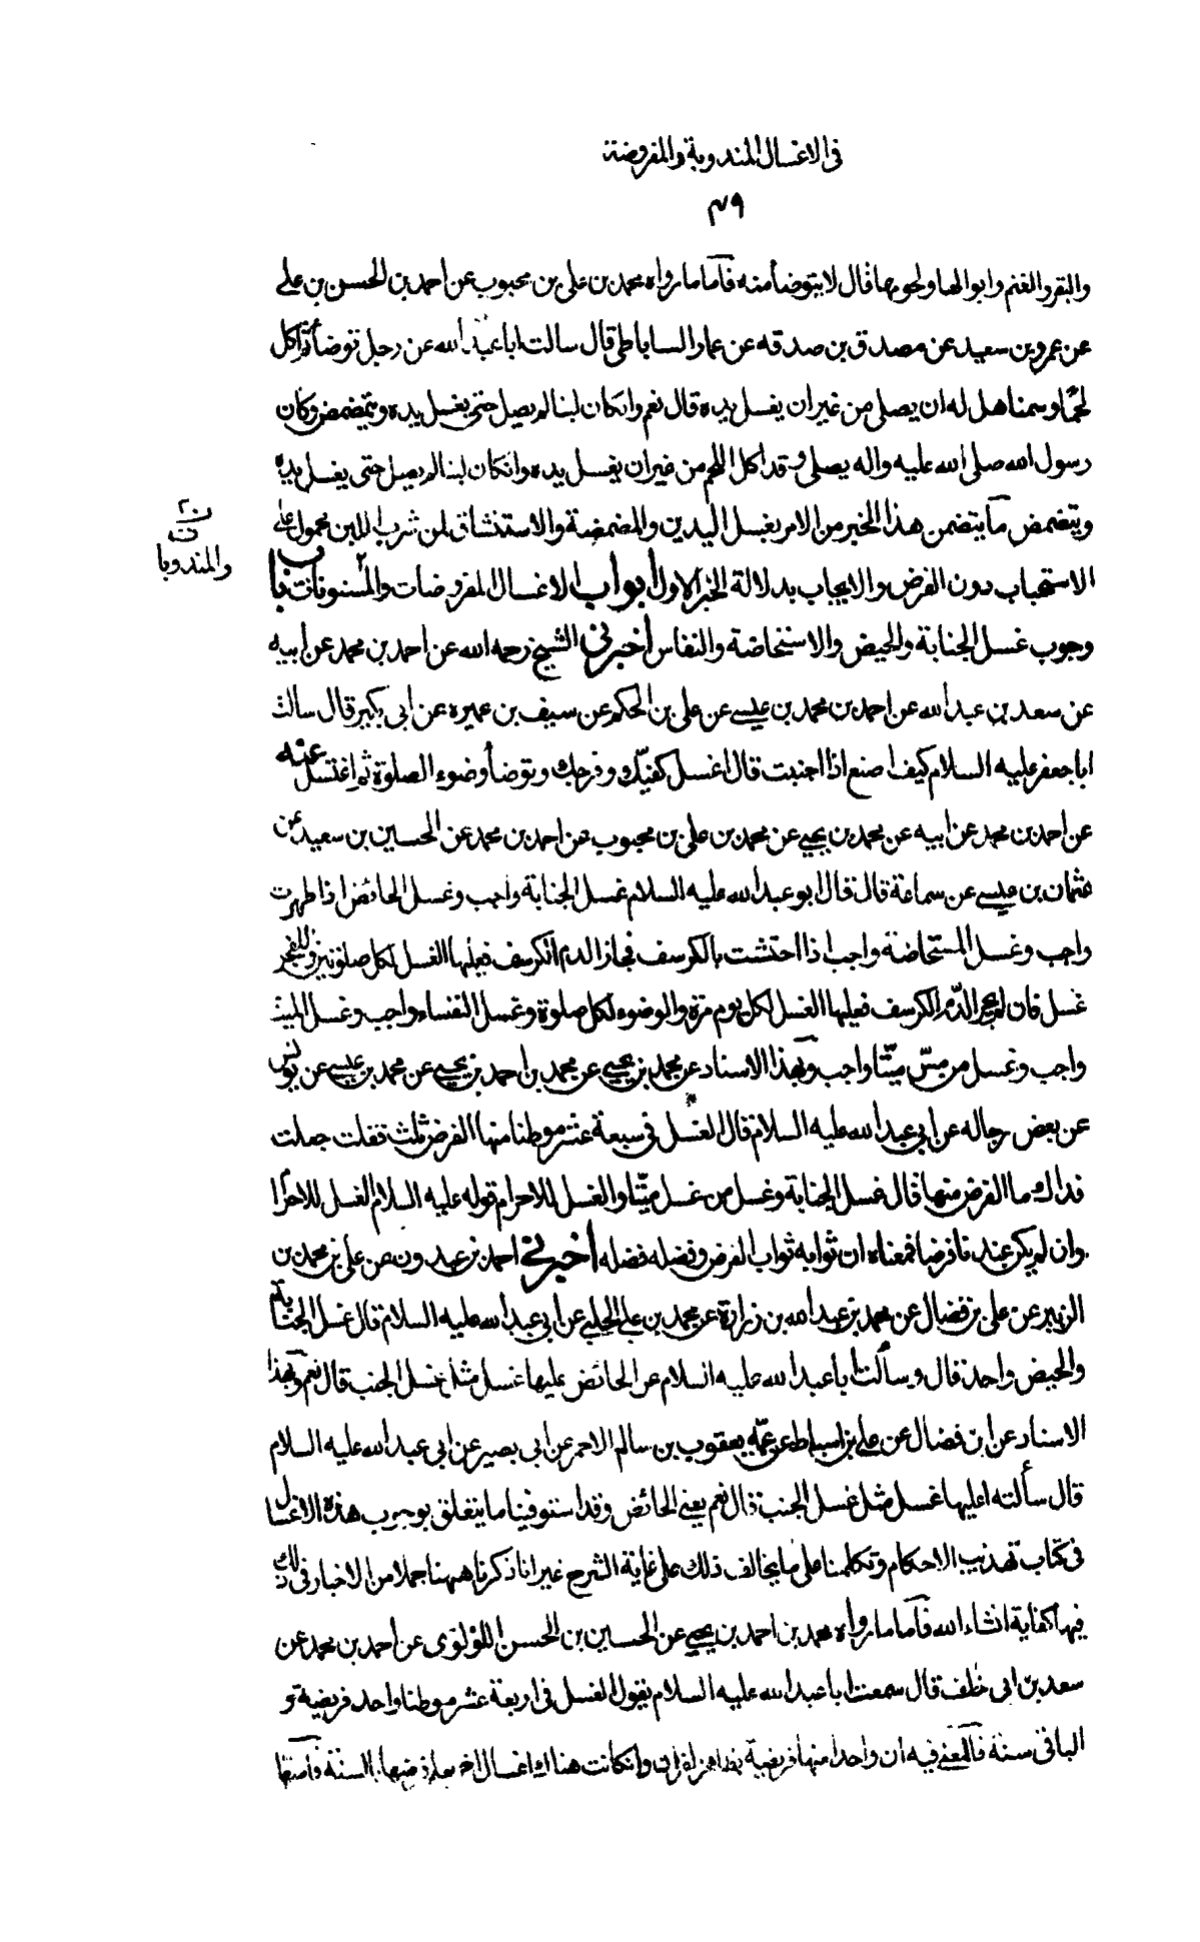 في الاغسال المندوبة والمفروضة
٤٩
والبقر والغنم وابوالها ولحومها فقال لا يتوضأ منه فاما ما رواه محمد بن علي بن محبوب عن احمد بن الحسن بن علي
عن عمرو بن سعيد عن مصدق بن صدقه عن عمار الساباطي قال سالت ابا عبد الله عن رجل توضأ ثم اكل
لحما وسمنا هل له ان يصلي من غير ان يغسل يده قال نعم وانكان لبنا لم يصل حتى يغسل يده ويتمضمض وكان
رسول الله صلى الله عليه واله يصلي وقد اكل اللحم من غير ان يغسل يده وانكان لبنا لم يصل حتى يغسل يده
ويتمضمض ما يتضمن هذا الخبر من الامر بغسل اليدين والمضمضة والاستنشاق لمن شرب اللبن محمول على
والمندوبا
الاستحباب دون الفرض والايجاب بدلالة الخبر الاول ابواب الاغسال المفروضات والمسنونات باب
وجوب غسل الجنابة والحيض والاستحاضة والنفاس اخبرني الشيخ رحمه الله عن احمد بن محمد عن ابيه
عن سعد بن عبد الله عن احمد بن محمد بن عيسى عن علي بن الحكم عن سيف بن عميره عن ابى بكير قال سالت
ابا جعفر عليه السلام كيف اصنع اذا اجنبت قال اغسل كفيك وفرجك وتوضأ وضوء الصلوة ثم اغتسل عنه
عن احمد بن محمد عن ابيه عن محمد بن يحيى عن محمد بن علي بن محبوب عن احمد بن محمد عن الحسين بن سعيد عن
عثمان بن عيسى عن سماعة قال قال ابو عبد الله عليه السلام غسل الجنابة واجب وغسل الحائض اذا طهرت
واجب وغسل المستحاضة واجب اذا احتشت بالكرسف فجاز الدم الكرسف فعليها الغسل لكل صلوتين وللفجر
غسل فان لم يجز الدم الكرسف فعليها الغسل لكل يوم مرة والوضوء لكل صلوة وغسل النفساء واجب وغسل الميت
واجب وغسل من مس ميتا واجب وبهذا الاسناد عن محمد بن يحيى عن محمد بن احمد بن يحيى عن محمد بن عيسى عن يونس
عن بعض رجاله عن ابي عبد الله عليه السلام قال الغسل في سبعة عشر موطنا منها الفرض ثلث فقلت جعلت
فداك ما الفرض منها قال غسل الجنابة وغسل من غسل ميتا والغسل للاحرام قوله عليه السلام الغسل للاحرام
وان لم يكن عندنا فرضا فمعناه ان ثوابه ثواب الفرض وفضله فضله اخبرني احمد بن عبدون عن علي بن محمد بن
الزبير عن علي بن فضال عن محمد بن عبد الله بن زرارة عن محمد بن علي الحلبي عن ابي عبد الله عليه السلام قال غسل الجنابة
والحيض واحد قال وسألت ابا عبد الله عليه السلام عن الحائض عليها غسل مثل غسل الجنب قال نعم وبهذا
الاسناد عن ابن فضال عن علي بن اسباط عن عمه يعقوب بن سالم الاحمر عن ابى بصير عن ابى عبد الله عليه السلام
قال سألته اعليها غسل مثل غسل الجنب قال نعم يعني الحائض وقد استوفينا ما يتعلق بوجوب هذه الاغسال
في كتاب تهذيب الاحكام وتكلمنا على ما يخالف ذلك على غاية الشرح غير انا ذكرنا ههنا جملا من الاخبار في ذلك
فيها كفاية انشاء الله فاما ما رواه محمد بن احمد بن يحيى عن الحسين بن الحسن اللؤلؤى عن احمد بن محمد عن
سعد بن ابى خلف قال سمعت ابا عبد الله عليه السلام يقول الغسل في اربعة عشر موطنا واحد فريضة و
الباقى سنة فالمعنى فيه ان واحدا منها فريضة وانكانت هناك اغسال اخر بالسنة